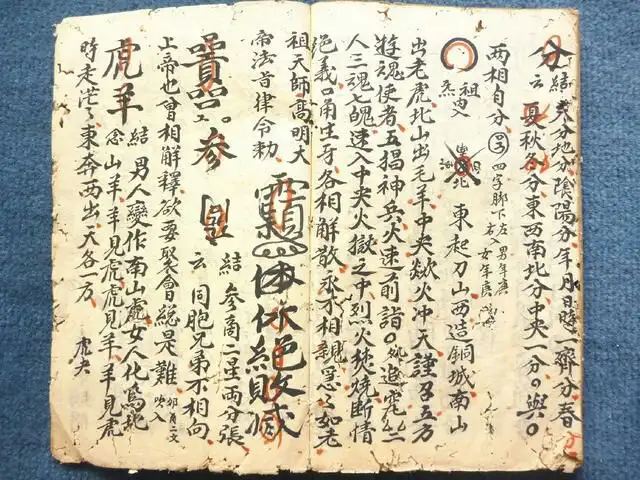 分 結云 天分地分陰陽分年月日時一齊分春
夏秋冬分東西南北分中央一分。與。
两相自分 四字脚下左右入 男年庚 女年庚
祖
北 東起刀山西造銅城南山
出老虎北山出毛羊中央燃火冲天謹召五方
遊魂使者五猖神兵火速前詣。
人三魂七魄速入中央火獄之中烈火焚燒断情
絕義口甬生牙各相解散永不相親急々如老
祖天師高明大
帝法旨律令勅
絕 滅
參 結云 參商二星兩分張
同胞兄弟不相向
上帝也曾相解釋欲要聚會総是難 卯酉二文 吹入
虎羊 結念 男人變作南山虎女人化爲北
山羊羊見虎虎見羊羊見虎
時走茫々東奔西出天各一方